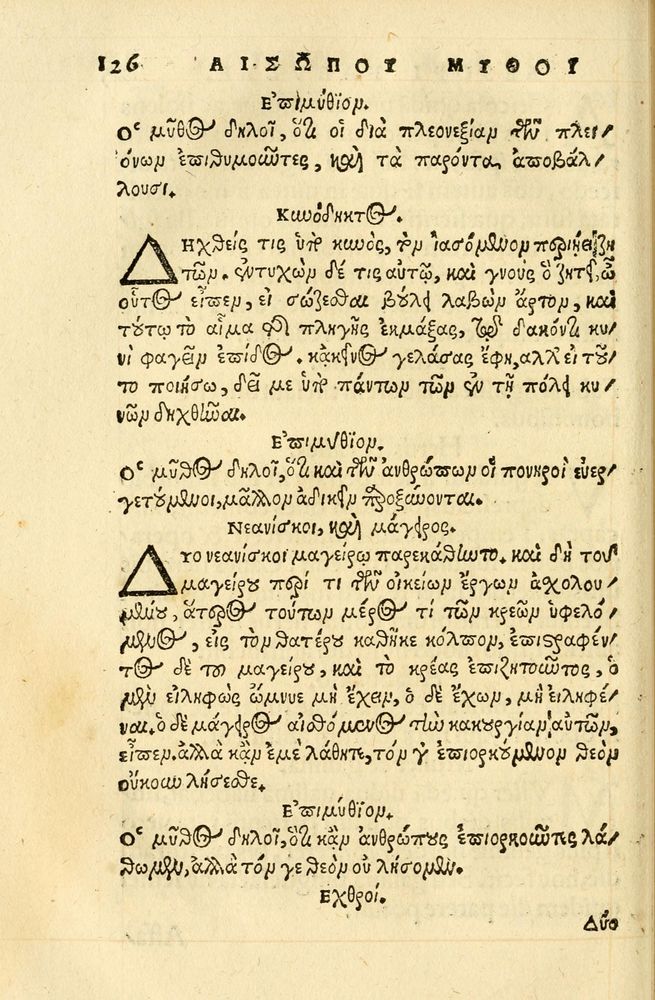 126 ΑΙΣΩΠΟΥ ΜΥΘΟΙ
Ἐπιμύθιον.
Ὁ μῦθος δηλοῖ, ὅτι οἱ διὰ πλεονεξίαν τῶν πλει/
όνων ἐπιθυμοῦντες, καὶ τὰ παρόντα ἀποβάλ/
λουσι.
Κυνόδηκτος.
ΔΗχθείς τις ὑπὸ κυνὸς, τὸν ἰασόμενον περιῄει ζη
τῶν. ἐντυχὼν δέ τις αὐτῷ, καὶ γνοὺς ὃ ζητεῖ, ὦ
οὗτος εἶπεν, εἰ σώζεσθαι βούλει λαβὼν ἄρτον, καὶ
τούτῳ τὸ αἷμα τῆς πληγῆς ἐκμάξας, τῷ δακόντι κυ/
νὶ φαγεῖν ἐπίδος. κἀκεῖνος γελάσας ἔφη, ἀλλ' εἰ τοῦ/
το ποιήσω, δεῖ με ὑπὸ πάντων τῶν ἐν τῇ πόλει κυ/
νῶν δηχθῆναι.
Ἐπιμύθιον.
Ὁ μῦθος δηλοῖ, ὅτι καὶ τῶν ἀνθρώπων οἱ πονηροὶ εὐερ/
γετούμενοι, μᾶλλον ἀδικεῖν παροξύνονται.
Νεανίσκοι, καὶ μάγειρος.
ΔΥο νεανίσκοι μαγείρῳ παρεκάθηντο. καὶ δὴ τοῦ
μαγείρου περί τι τῶν οἰκείων ἔργων ἀσχολου/
μένου, ἅτερος τούτων μέρος τι τῶν κρεῶν ὑφελό/
μενος, εἰς τὸν θατέρου καθῆκε κόλπον, ἐπιστραφέν/
τος δὲ τοῦ μαγείρου, καὶ τὸ κρέας ἐπιζητοῦντος, ὁ
μὲν εἰληφὼς ὤμνυε μὴ ἔχειν, ὁ δὲ ἔχων, μὴ εἰληφέ/
ναι. ὁ δὲ μάγειρος αἰσθόμενος τὴν κακουργίαν αὐτῶν,
εἶπεν. ἀλλὰ κἂν ἐμὲ λάθητε, τόν γ' ἐπιορκούμενον θεὸν
οὔκουν λήσεσθε.
Ἐπιμύθιον.
Ὁ μῦθος δηλοῖ, ὅτι κἂν ἀνθρώπους ἐπιορκοῦντες λά/
θωμεν, ἀλλὰ τόν γε θεὸν οὐ λήσομεν.
Ἐχθροί.
Δύο